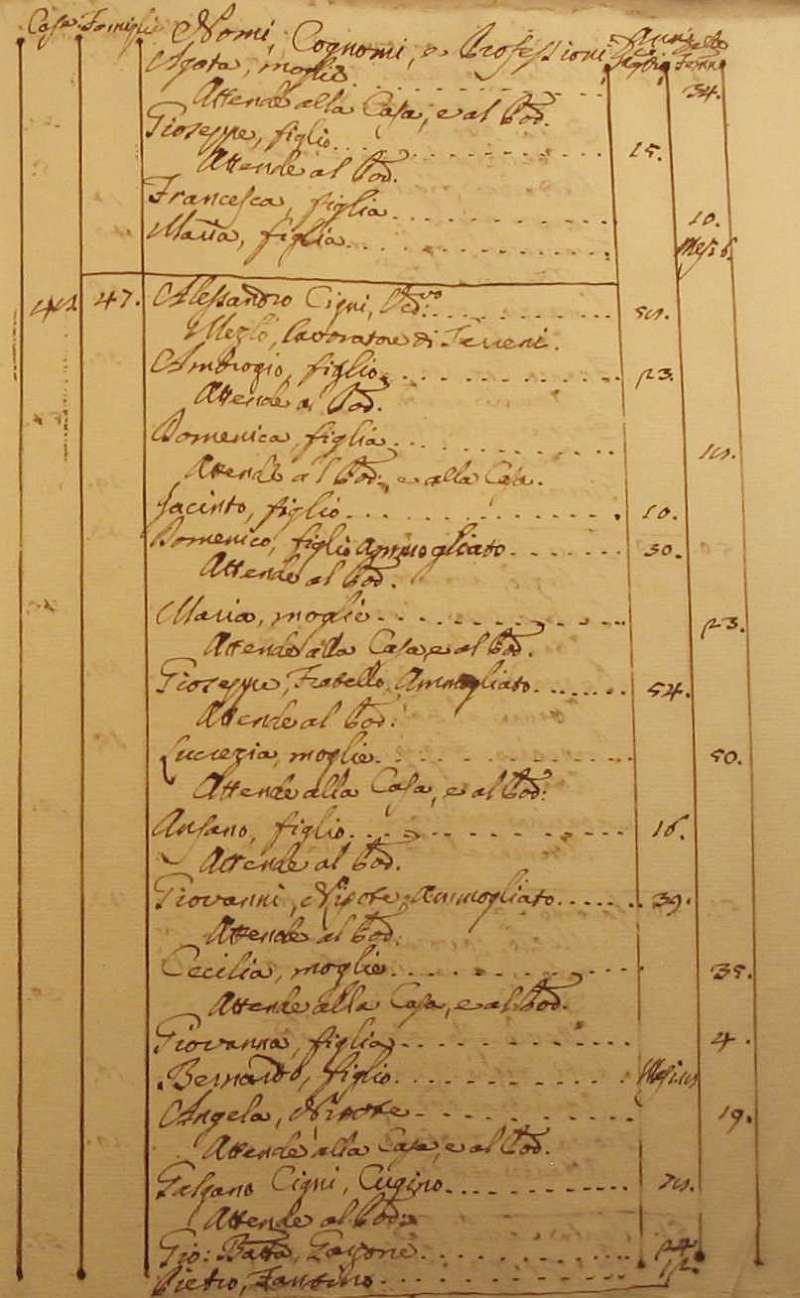 Case Famiglie Nomi, Cognomi, e Professioni
Agata, moglie 34.
Attende alla Casa, e al Pod.
Gioseppe, figlio 15.
Attende al Pod.
Francesca, figlia 10.
Maria, figlia Mesi 6.
47. Alessandro Cigni, Ved:vo
lavoratore di Terreni.
Ambrogio, figlio 23.
Attende al Pod.
Domenica, figlia
Attende al Pod:, e alla Casa.
Jacinto, figlio 10.
Domenico, figlio Ammogliato 30.
Attende al Pod.
Maria, moglie 23.
Attende alla Casa, e al Pod.
Gioseppe, Fratello, Ammogliato 54.
Attende al Pod:
Lucrezia, moglie 50.
Attende alla Casa, e al Pod:
Ansano, figlio 16.
Attende al Pod.
Giovanni, Nipote, Ammogliato 39.
Attende al Pod:
Cecilia, moglie 35.
Attende alla Casa, e al Pod.
Giovanna, figlia 4.
Bernardo, figlio Mesi
Angela, Nipote 19.
Attende alla Casa, e al Pod.
Galgano Cigni, Cugino
Attende al Pod:
Gio: Batta, Garzone
Pietro, Fantino